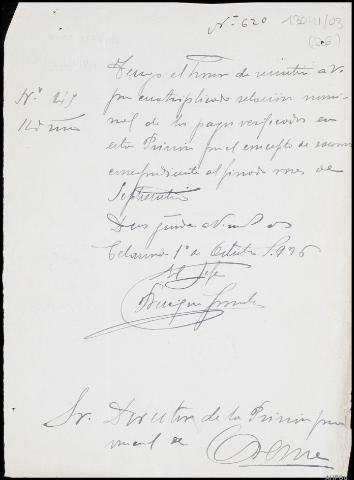 Nº 620
13041/03
(26)
Tengo el honor de remitir a V.
por cuatriplicado relación nomi-
nal de los pagos verificados en
esta Prisión por el concepto de socorros
correspondiente al finado mes de
Septiembre
Nº 219
Dios guarde a V. muchos
1º de Octubre 1.936
El Jefe
Sr. Director de la Prisión pro
vincial de
Orense